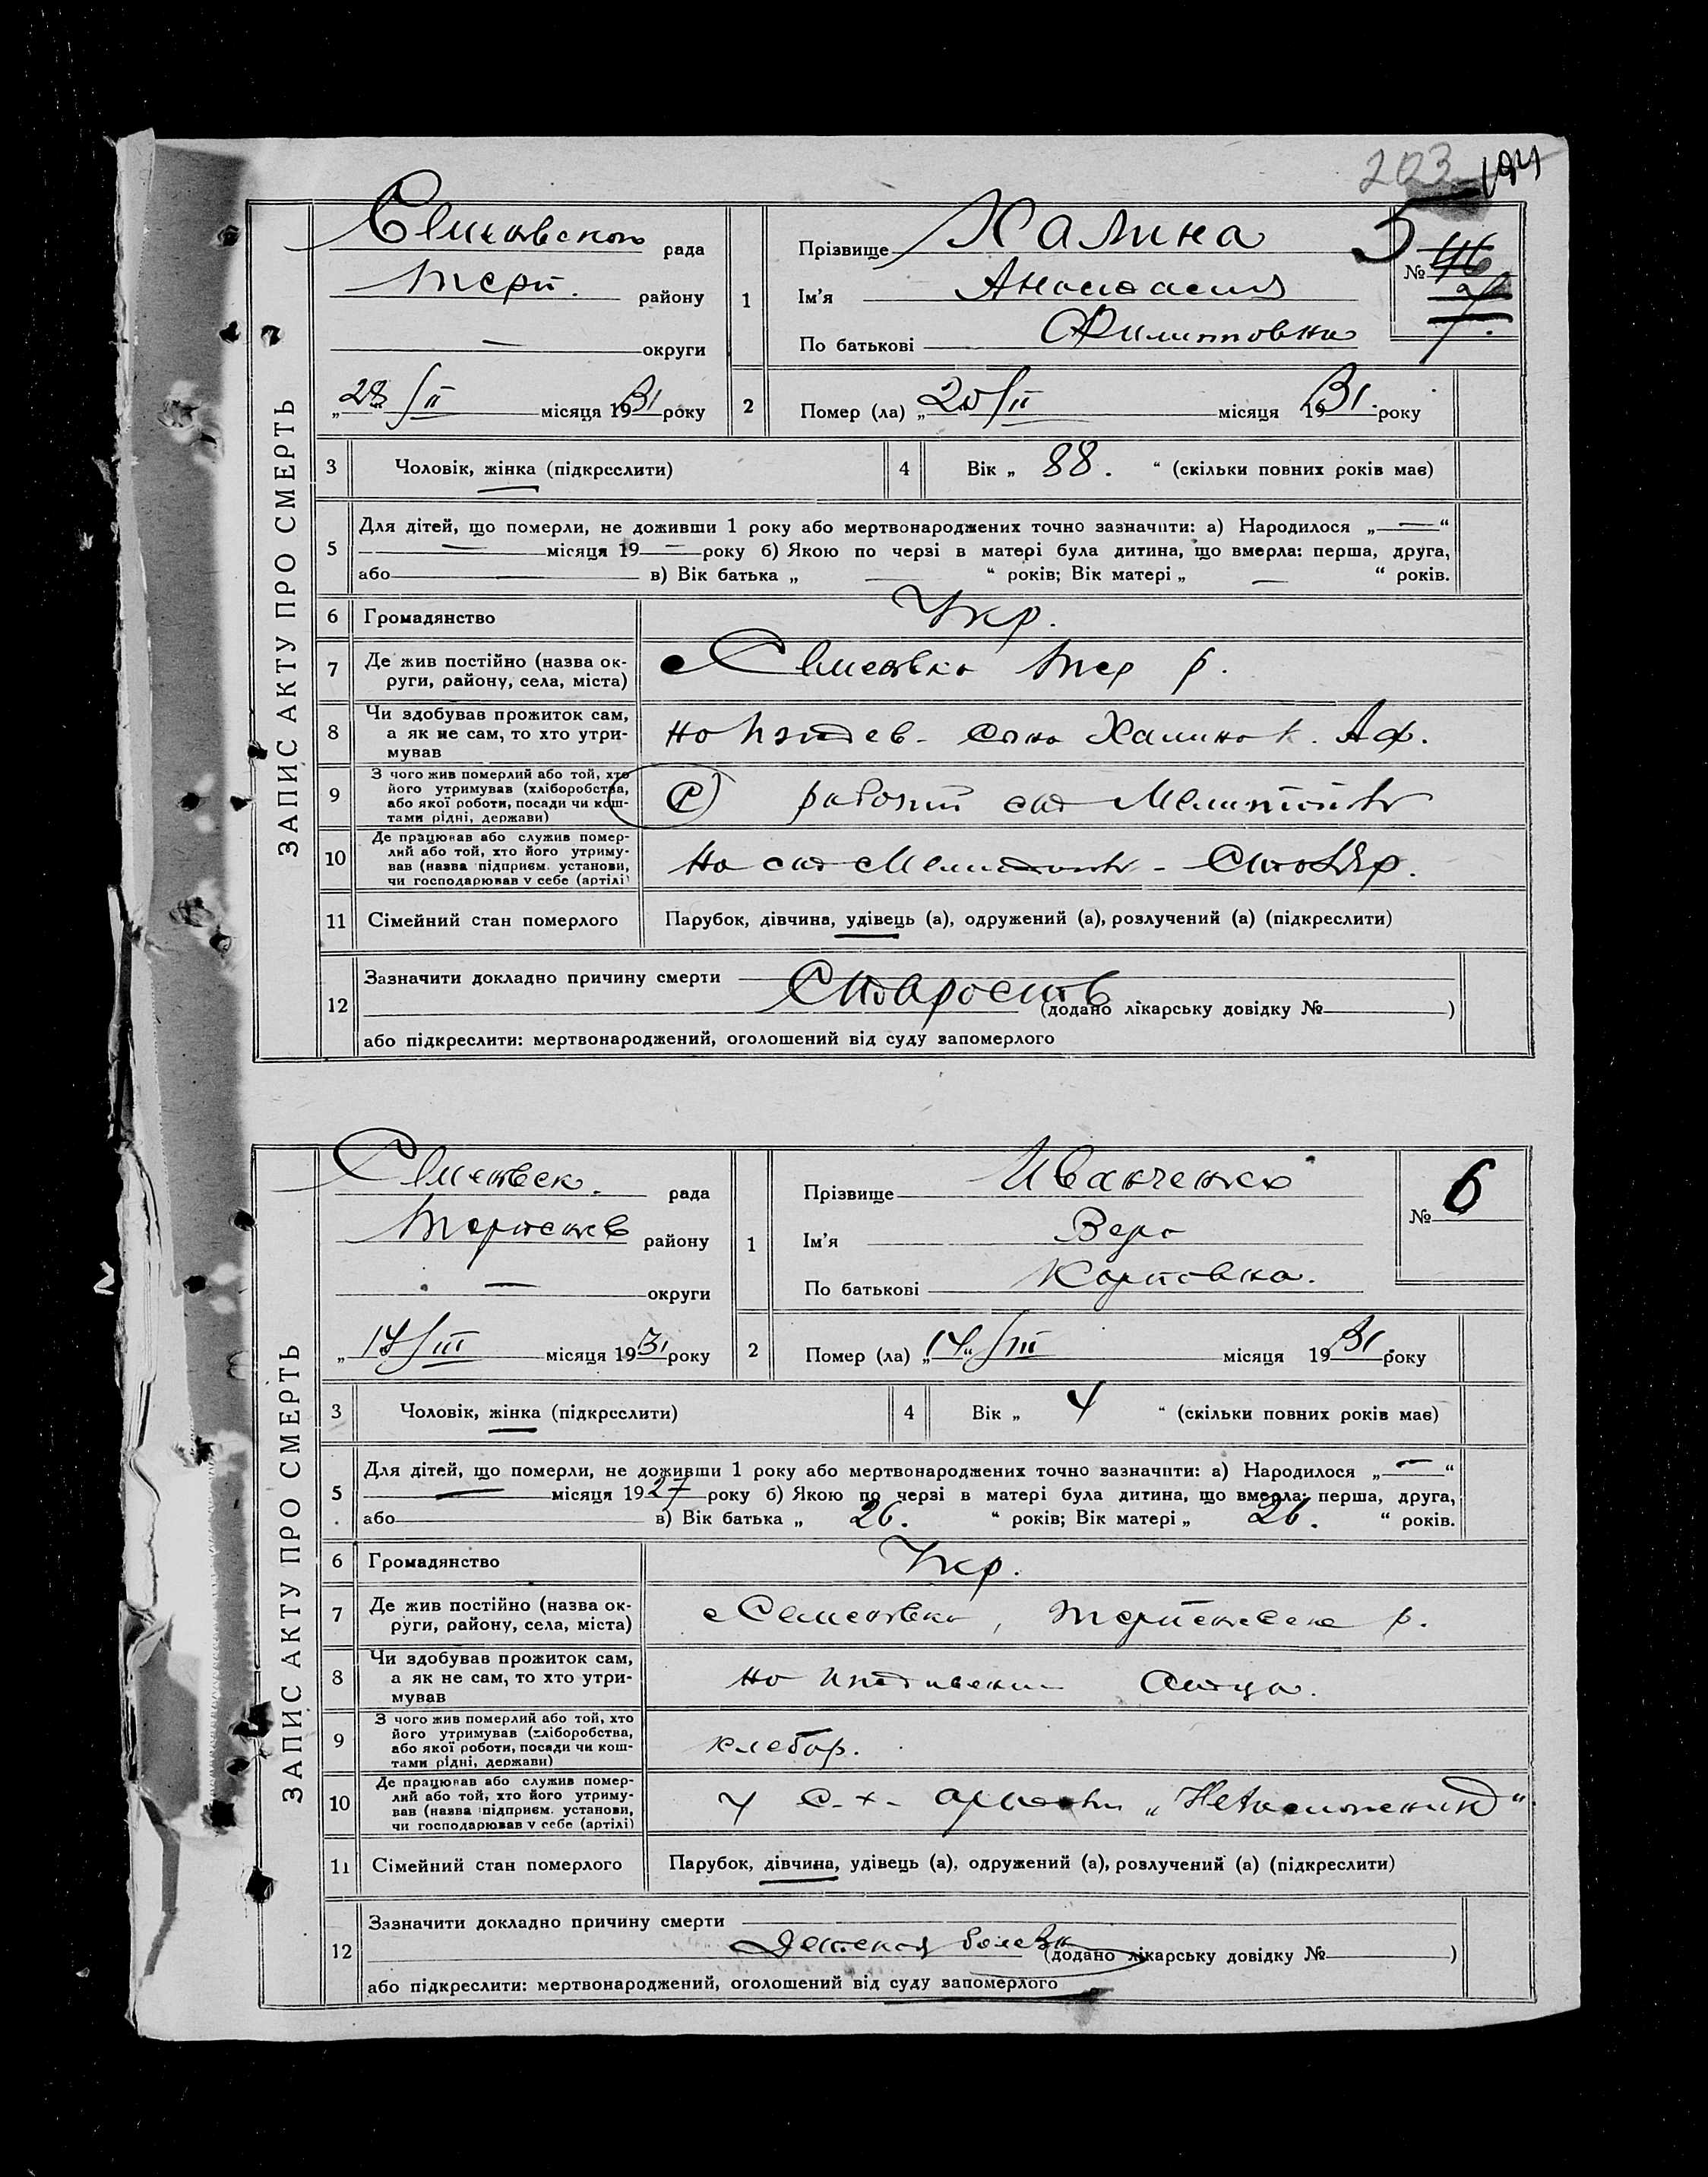 203 194
ЗАПИС АКТУ ПРО СМЕРТЬ
рада
Терп. району
— округи
„28 / II місяця 1931 року
1
Прізвище Халина
Ім'я Анастасия
По батькові Филипповна
5
№ 46
2 Помер (ла) „20 / II місяця 1931. року
3 Чоловік, жінка (підкреслити)
4 Вік „ 88. “ (скільки повних років має)
5 Для дітей, що померли, не доживши 1 року або мертвонароджених точно зазначити: а) Народилося „—“
— місяця 19 — року б) Якою по черзі в матері була дитина, що вмерла: перша, друга,
або — в) Вік батька „ — “ років; Вік матері „ — “ років.
6 Громадянство Укр.
7 Де жив постійно (назва ок-
руги, району, села, міста) с Семеновка Тер р.
8 Чи здобував прожиток сам,
а як не сам, то хто утри-
мував
на иждев. сына Халина К. Аф.
9 З чого жив померлий або той, хто
його утримував (хліборобства,
або якої роботи, посади чи кош-
тами рідні, держави)
рабочий ст Мелитополь
10 Де працював або служив помер-
лий або той, хто його утриму-
вав (назва підприєм. установи,
чи господарював у себе (артілі)
На ст Мелитополь - Столяр.
11 Сімейний стан померлого Парубок, дівчина, удівець (а), одружений (а), розлучений (а) (підкреслити)
12 Зазначити докладно причину смерти
Старость (додано лікарську довідку № )
або підкреслити: мертвонароджений, оголошений від суду запомерлого
ЗАПИС АКТУ ПРО СМЕРТЬ
Семеновск. рада
району
— округи
„17 / III місяця 1931 року
1
Прізвище Иванченко
Ім'я Вера
По батькові Карповна.
№ 6
2 Помер (ла) „14“ / III місяця 1931 року
3 Чоловік, жінка (підкреслити)
4 Вік „ 4 “ (скільки повних років має)
5 Для дітей, що померли, не доживши 1 року або мертвонароджених точно зазначити: а) Народилося „—“
— місяця 1927 року б) Якою по черзі в матері була дитина, що вмерла: перша, друга,
або в) Вік батька „ 26. “ років; Вік матері „ 26. “ років.
6 Громадянство Укр.
7 Де жив постійно (назва ок-
руги, району, села, міста) с Семеновка, р.
8 Чи здобував прожиток сам,
а як не сам, то хто утри-
мував
на иждивении отца.
9 З чого жив померлий або той, хто
його утримував (хліборобства,
або якої роботи, посади чи кош-
тами рідні, держави)
хлебор.
10 Де працював або служив помер-
лий або той, хто його утриму-
вав (назва підприєм. установи,
чи господарював у себе (артілі)
У С.-х- артели
11 Сімейний стан померлого Парубок, дівчина, удівець (а), одружений (а), розлучений (а) (підкреслити)
12 Зазначити докладно причину смерти
Детская болезн (додано лікарську довідку № )
або підкреслити: мертвонароджений, оголошений від суду запомерлого